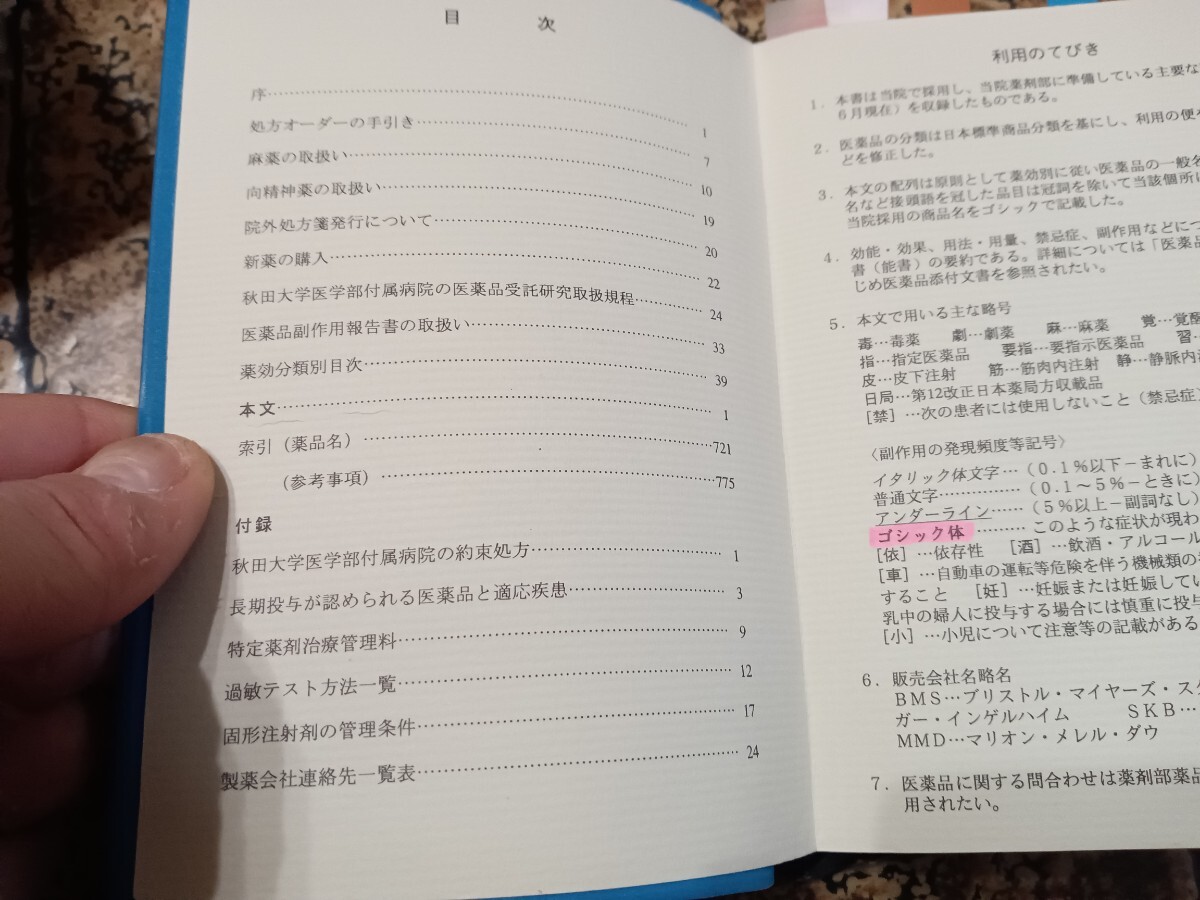 目 次
序
処方オーダーの手引き……1
麻薬の取扱い……7
向精神薬の取扱い……10
院外処方箋発行について……19
新薬の購入……20
秋田大学医学部付属病院の医薬品受託研究取扱規程……22
医薬品副作用報告書の取扱い……24
薬効分類別目次……33
本文……39
索引（薬品名）……1
（参考事項）……721
775
付録
秋田大学医学部付属病院の約束処方……1
長期投与が認められる医薬品と適応疾患……3
特定薬剤治療管理料……9
過敏テスト方法一覧……12
固形注射剤の管理条件……17
製薬会社連絡先一覧表……24
利用のてびき
1．本書は当院で採用し、当院薬剤部に準備している主要な
6月現在）を収録したものである。
2．医薬品の分類は日本標準商品分類を基にし、利用の便
どを修正した。
3．本文の配列は原則として薬効別に従い医薬品の一般名
名など接頭語を冠した品目は冠詞を除いて当該個所に
当院採用の商品名をゴシックで記載した。
4．効能・効果、用法・用量、禁忌症、副作用などにつ
書（能書）の要約である。詳細については「医薬品
じめ医薬品添付文書を参照されたい。
5．本文で用いる主な略号
毒…毒薬 劇…劇薬 麻…麻薬 覚…覚醒
指…指定医薬品 要指…要指示医薬品 習…
皮…皮下注射 筋…筋肉内注射 静…静脈内
日局…第12改正日本薬局方収載品
［禁］…次の患者には使用しないこと（禁忌症）
〈副作用の発現頻度等記号〉
イタリック体文字…（0.1％以下－まれに）
普通文字……（0.1～5％－ときに）
アンダーライン……（5％以上－副詞なし）
ゴシック体………このような症状が現わ
［依］…依存性 ［酒］…飲酒・アルコール
［車］…自動車の運転等危険を伴う機械類の
すること ［妊］…妊娠または妊娠してい
乳中の婦人に投与する場合には慎重に投与
［小］…小児について注意等の記載がある
6．販売会社名略名
BMS…ブリストル・マイヤーズ・スク
ガー・インゲルハイム SKB…
MMD…マリオン・メレル・ダウ
7．医薬品に関する問合わせは薬剤部薬品
用されたい。